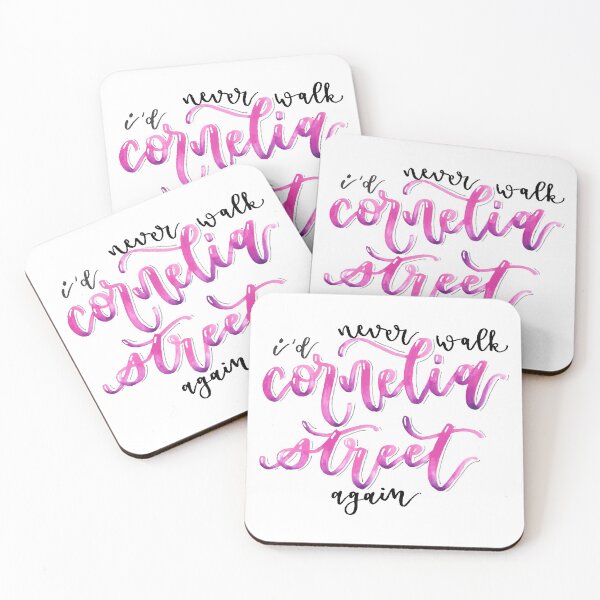 i'd never walk
cornelia
street
i'd never walk
cornelia
street
i'd never walk
cornelia
street
again
i'd never walk
cornelia
street
again